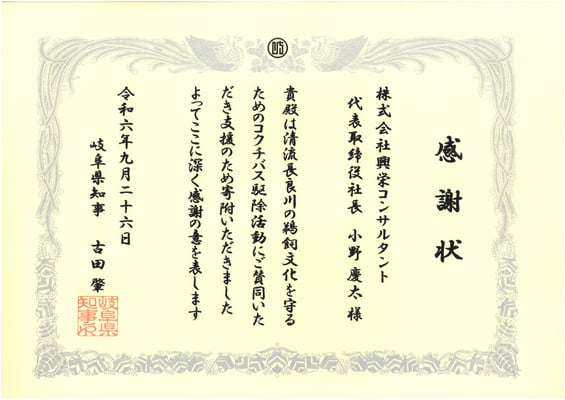 岐
感謝状
株式会社興栄コンサルタント
代表取締役社長 小野慶太様
貴殿は清流長良川の鵜飼文化を守る
ためのコクチバス駆除活動にご賛同いた
だき支援のため寄附いただきました
よってここに深く感謝の意を表します
令和六年九月二十六日
岐阜県知事 古田肇
岐阜県
知事之印